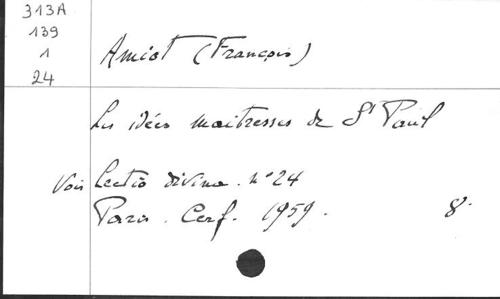 313A
139
1
24
Amiot (François)
Les idées maitresses de St Paul
Voir Lectio divina. n° 24
Paris. Cerf. 1959. 8°